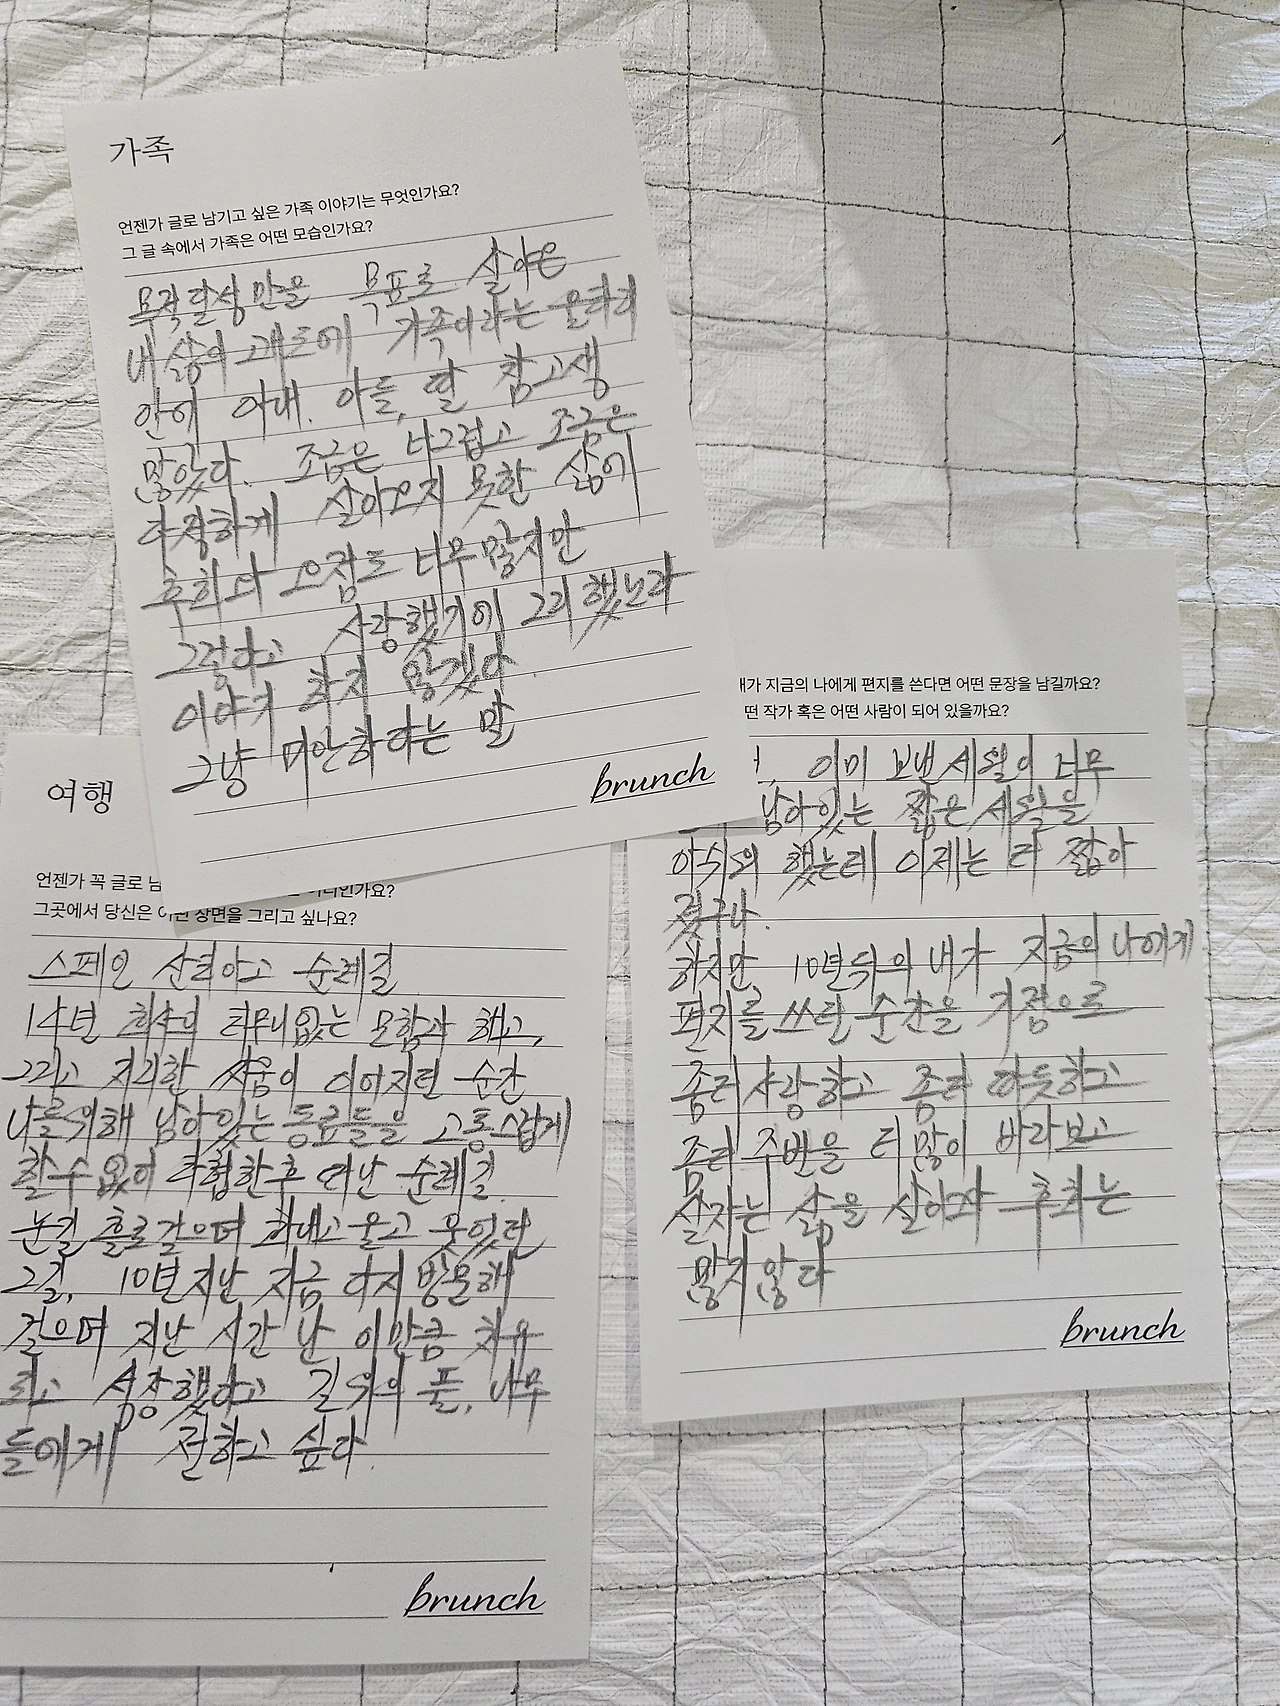 가족
언젠가 글로 남기고 싶은 가족 이야기는 무엇인가요?
그 글 속에서 가족은 어떤 모습인가요?
목적달성만을 목표로 살아온
내 삶의 궤도에 가족이라는 울타리
안에 아내, 아들, 딸 참고생
많았다. 조금은 너그럽고 조금은
다정하게 살아오지 못한 삶에
후회와 오점도 너무 많지만
그렇다고 사랑했기에 그리했노라
이야기 하지 않겠다.
그냥 미안하다는 말
brunch
여행
언젠가 꼭 글로 남
인가요?
그곳에서 당신은 어떤 장면을 그리고 싶나요?
스페인 산티아고 순례길
14년 회사의 터무니없는 모함과 해고,
그리고 지리한 싸움이 이어지던 순간
나를 위해 남아있는 동료들을 고통스럽게
할 수 없어 타협한 후 떠난 순례길.
눈길 홀로 걸으며 화내고 울고 웃었던
그길, 10년 지난 지금 다시 방문해
걸으며 지난 시간 난 이만큼 치유
되고 성장했다고 길 위의 풀, 나무
들에게 전하고 싶다.
brunch
가 지금의 나에게 편지를 쓴다면 어떤 문장을 남길까요?
떤 작가 혹은 어떤 사람이 되어 있을까요?
이미 보낸 세월이 너무
남아있는 짧은 세월을
아쉬워 했는데 이제는 더 짧아
졌구나.
하지만 10년 뒤의 내가 지금의 나에게
편지를 쓰려던 순간을 기점으로
좀더 사랑하고 좀더 따뜻하고
좀더 주변을 더 많이 바라보고
살자는 삶을 살아와 후회는
많지 않다
brunch